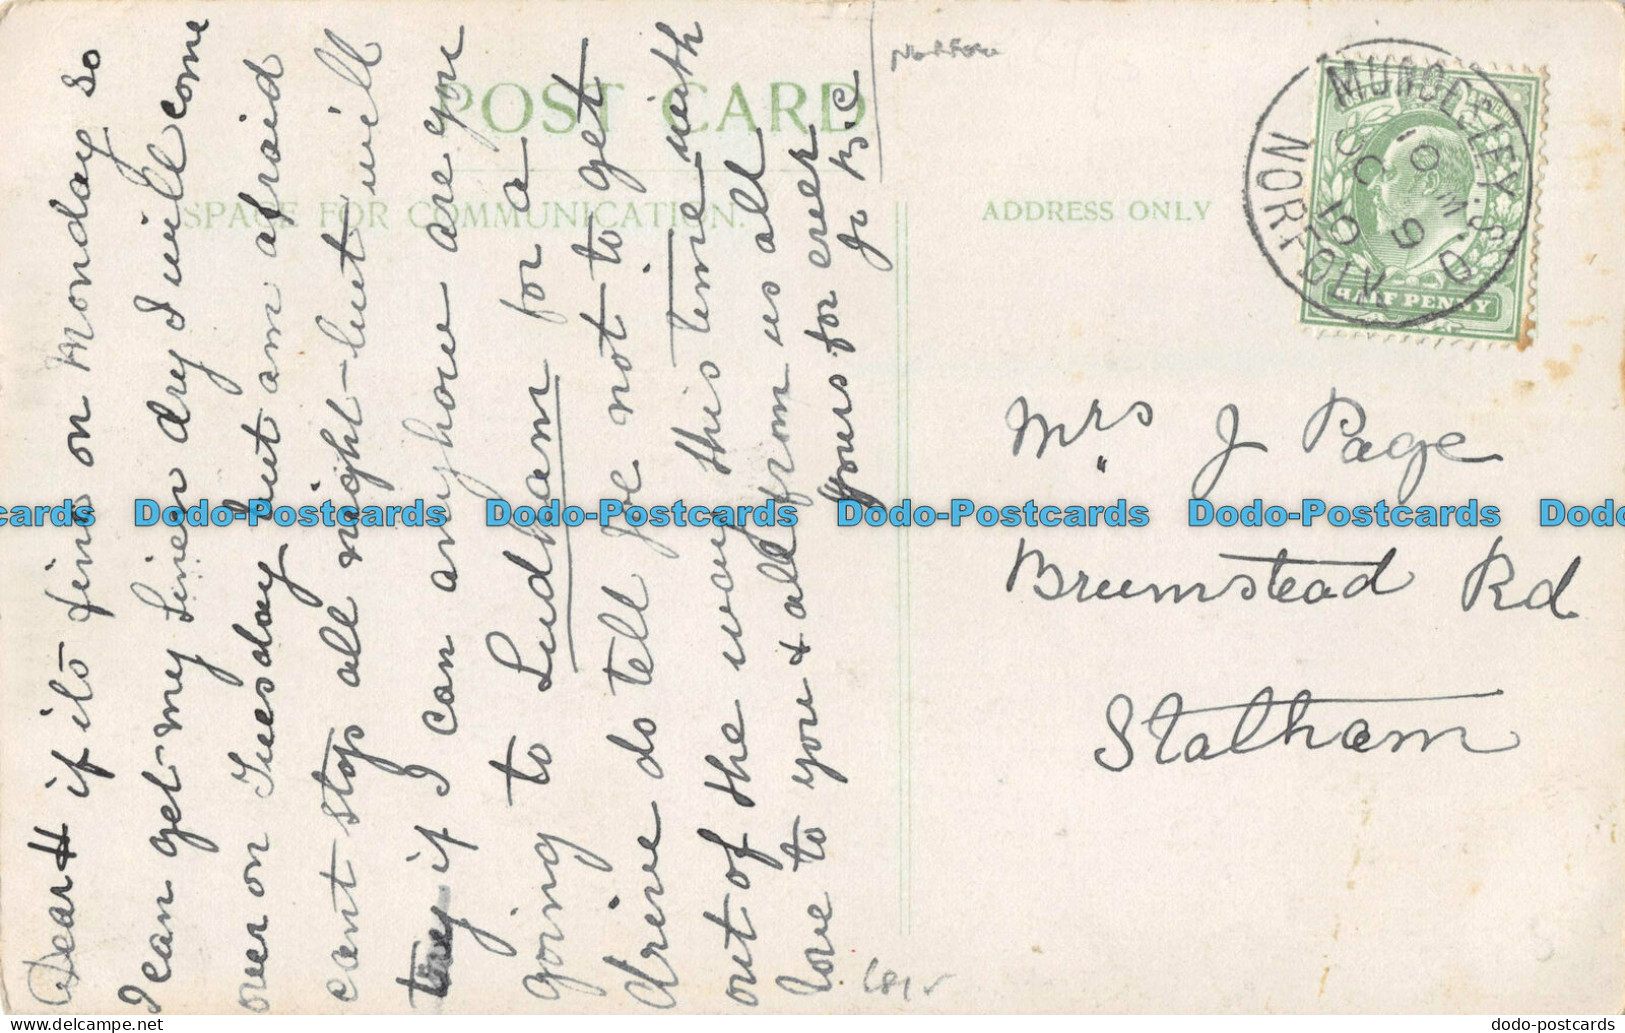 POST CARD
SPACE FOR COMMUNICATION.
ADDRESS ONLY
Dear H if its fine on Monday so
I can get my Linen dry I will come
over on Tuesday but am afraid
cant stop all night but will
try if I can anyhow are you
going to Ludham for a
drive do tell Joe not to get
out of the way this time with
love to you & all from us all
yours for ever
MUNDESLEY. S.O.
NORFOLK
OC 9
10
HALF PENNY
Mrs J Page
Brumstead Rd
Stalham
Dodo-Postcards Dodo-Postcards Dodo-Postcards Dodo-Postcards
dodo-postcards.com